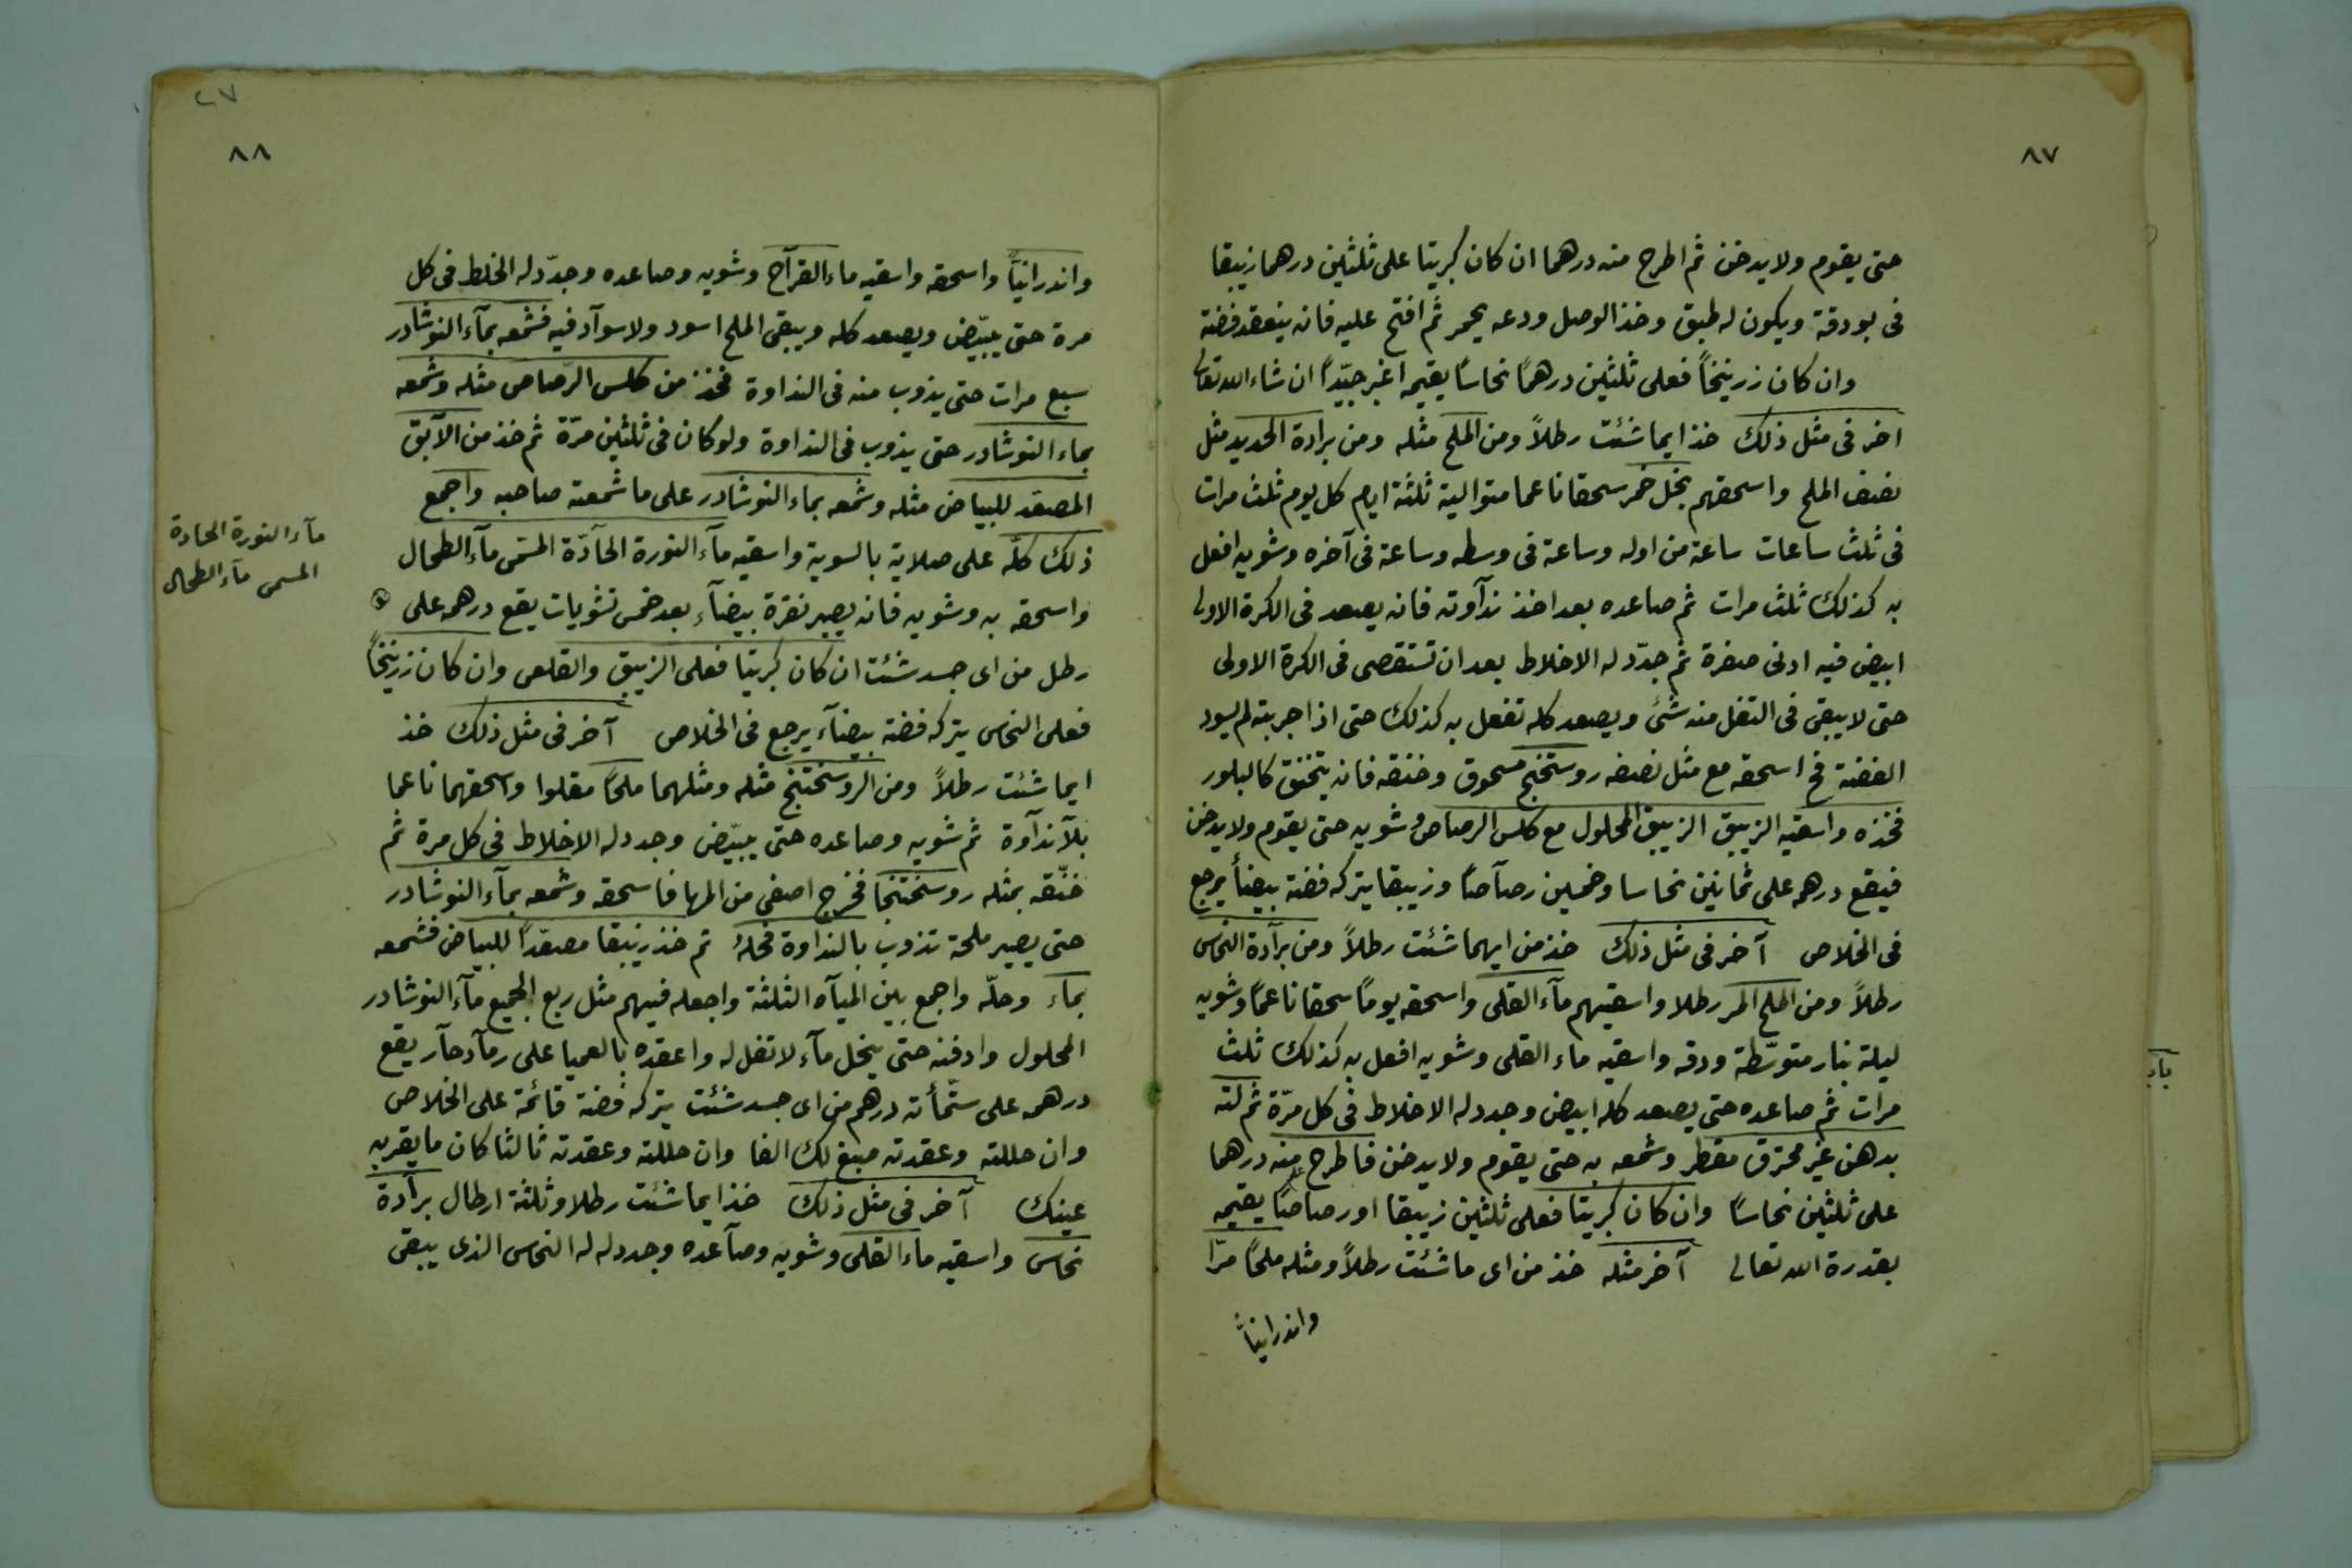 ٨٧
حتى يقوم ولا يدخن ثم اطرح منه درهما ان كان كبريتا على ثلثين درهما زيبقا
فى بودقة ويكون له طبق وخذ الوصل ودعه يحمر ثم افتح عليه فانه ينعقد فضة
وان كان زرنيخاً فعلى ثلثين درهمًا نحاسًا يقيمه اغبر جيّداً ان شاء الله تعالى
اخر فى مثل ذلك خذ ايما شئت رطلاً ومن الملح مثله ومن برادة الحديد مثل
نصف الملح واسحقهم بخل خمر سحقا ناعما متوالية ثلثة ايام كل يوم ثلث مرات
فى ثلث ساعات ساعة من اوله وساعة فى وسطه وساعة فى آخره وشويه افعل
به كذلك ثلث مرات ثم صاعده بعد اخذ ندآوته فانه يصعد فى الكرة الاولى
ابيض فيه ادنى صفرة ثم جدّد له الاخلاط بعد ان تستقصى فى الكرة الاولى
حتى لا يبقى فى الثفل منه شئ ويصعد كله تفعل به كذلك حتى اذا جربته لم يسود
الفضة فخ اسحقه مع مثل نصفه روستختج مسحوق وخنقه فانه يتخنق كالبلور
فخذه واسقيه الزيبق الزيبق المحلول مع كلس الرصاص وشويه حتى يقوم ولا يدخن
فيقع درهمه على ثمانين نحاسا وخمسين رصآصًا وزيبقا يتركه فضة بيضأ يرجع
فى الخلاص آخر فى مثل ذلك خذ من ايهما شئت رطلاً ومن برآدة النحاس
رطلاً ومن الملح المر رطلا واسقيهم مآء القلى واسحقه يومًا سحقا ناعمًا وشويه
ليلة بنار متوسّطة ودقه واسقيه ماء القلى وشويه افعل به كذلك ثلث
مرات ثم صاعده حتى يصعد كله ابيض وجدد له الاخلاط فى كل مرّة ثم لته
بدهن غير محترق مقطر وشمعه به حتى يقوم ولا يدخن فاطرح منه درهما
على ثلثين نحاسًا وان كان كبريتا فعلى ثلثين زيبقا او رصاصًا يقيمه
بقدرة الله تعالى آخر مثله خذ من اى ما شئت رطلاً ومثله ملحًا مرّا
واندرانياً
٢٧
٨٨
واندرانيًا واسحقه واسقيه ماء القرآح وشويه وصاعده وجدّد له الخلط فى كل
مرة حتى يبيّض ويصعد كله ويبقى الملح اسود ولا سوآد فيه فشمعه بمآء النوشادر
سبع مرات حتى يذوب منه فى النداوة فخذ من كلس الرّصاص مثله وشمعه
بماء النوشادر حتى يذوب فى النداوة ولو كان فى ثلثين مرّة ثم خذ من الآبق
المصعد للبياض مثله وشمعه بماء النوشادر على ما شمعت صاحبه واجمع
ذلك كلّه على صلاية بالسوية واسقيه مآء النورة الحآدّة المسّمى مآء الطحال
واسحقه به وشويه فانه يصير نقرة بيضآء بعد خمس تشويات يقع درهمه على
رطل من اى جسد شئت ان كان كبريتا فعلى الزيبق والقلعى وان كان زرنيخًا
فعلى النحاس يتركه فضة بيضآء يرجع فى الخلاص آخر فى مثل ذلك خذ
ايما شئت رطلاً ومن الروسختنج مثله ومثلهما ملحًا مقلوا واسحقهما ناعما
بلآ ندآوة ثم شويه وصاعده حتى يبيّض وجدد له الاخلاط فى كل مرة ثم
خنّقه بمثله روسختنجا فخرج اصفى من المها فاسحقه وشمعه بمآء النوشادر
حتى يصير ملحة تذوب بالنداوة فحلهُ ثم خذ زيبقا مصعّداً للبياض فشمعه
بماء وحلّه واجمع بين الميآه الثلثة واجعله فيهم مثل ربع الجميع مآء النوشادر
المحلول وادفنه حتى ينحل مآء لا تفل له واعقده بالعميا على رمآد حآر يقع
درهمه على ستّمأئة درهم من اى جسد شئت يتركه فضة قائمة على الخلاص
وان حللته وعقدته صبغ لك الفا وان حللته وعقدته ثالثا كان ما يقر به
عينك آخر فى مثل ذلك خذ ايما شئت رطلا وثلثة ارطال برآدة
نحاس واسقيه ماء القلى وشويه وصآعده وجدد له له النحاس الذى يبقى
مآء النورة الحادة
المسمى مآء الطحال